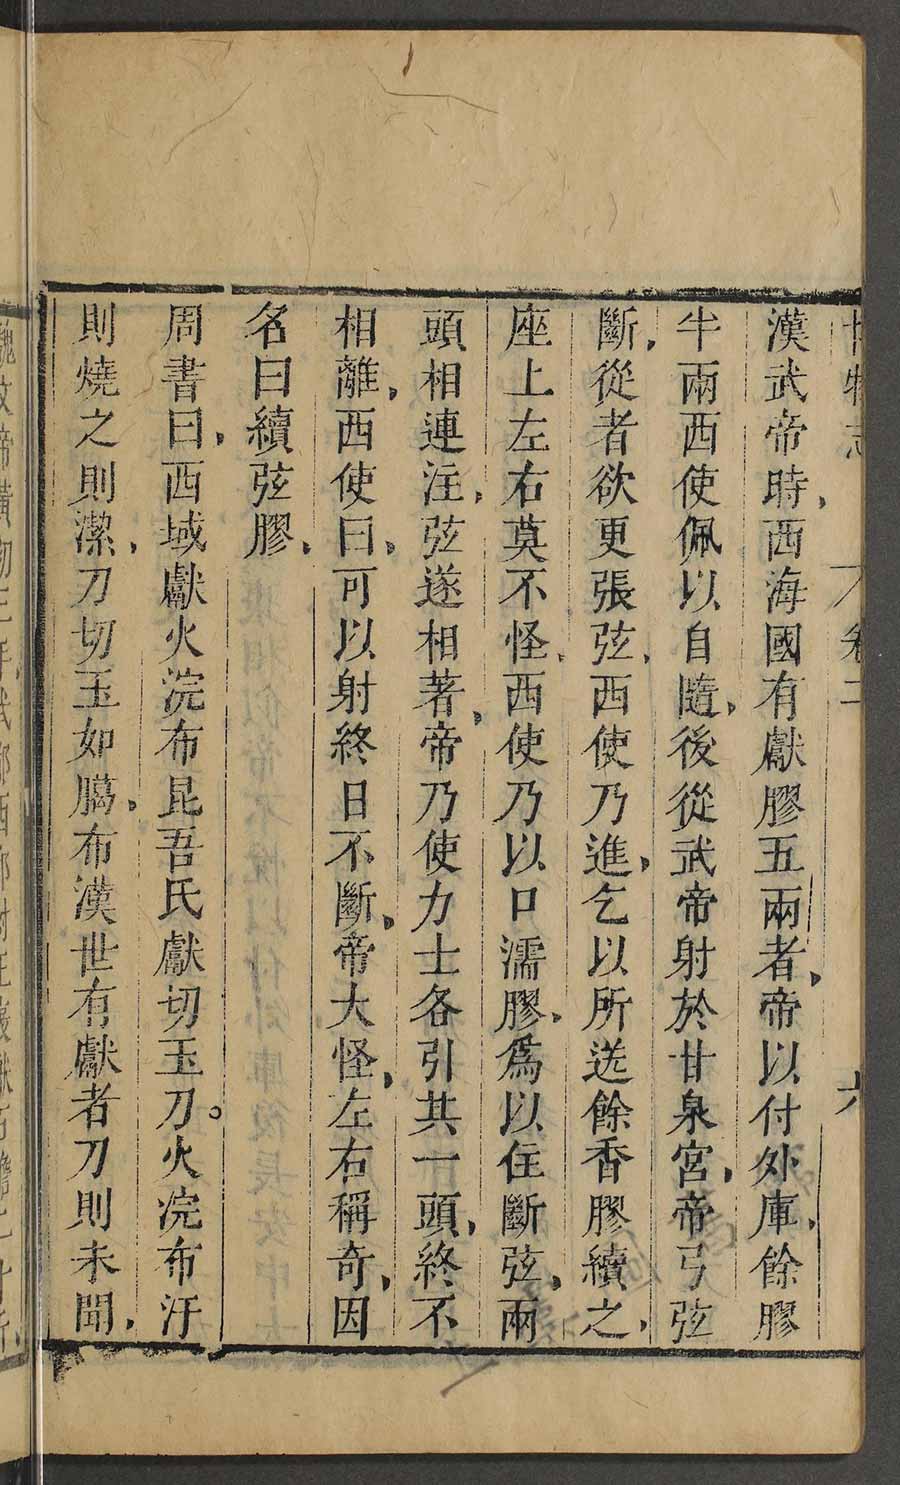 博物志 卷二 六
漢武帝時，西海國有獻膠五兩者，帝以付外庫，餘膠
半兩西使佩以自隨，後從武帝射於甘泉宮，帝弓弦
斷，從者欲更張弦，西使乃進，乞以所送餘香膠續之，
座上左右莫不怪，西使乃以口濡膠，爲以住斷弦，兩
頭相連注，弦遂相著，帝乃使力士各引其一頭，終不
相離，西使曰，可以射終日不斷，帝大怪，左右稱奇，因
名曰續弦膠，
周書曰，西域獻火浣布昆吾氏獻切玉刀。火浣布汙
則燒之則潔，刀切玉如䐑，布漢世有獻者刀則未聞，